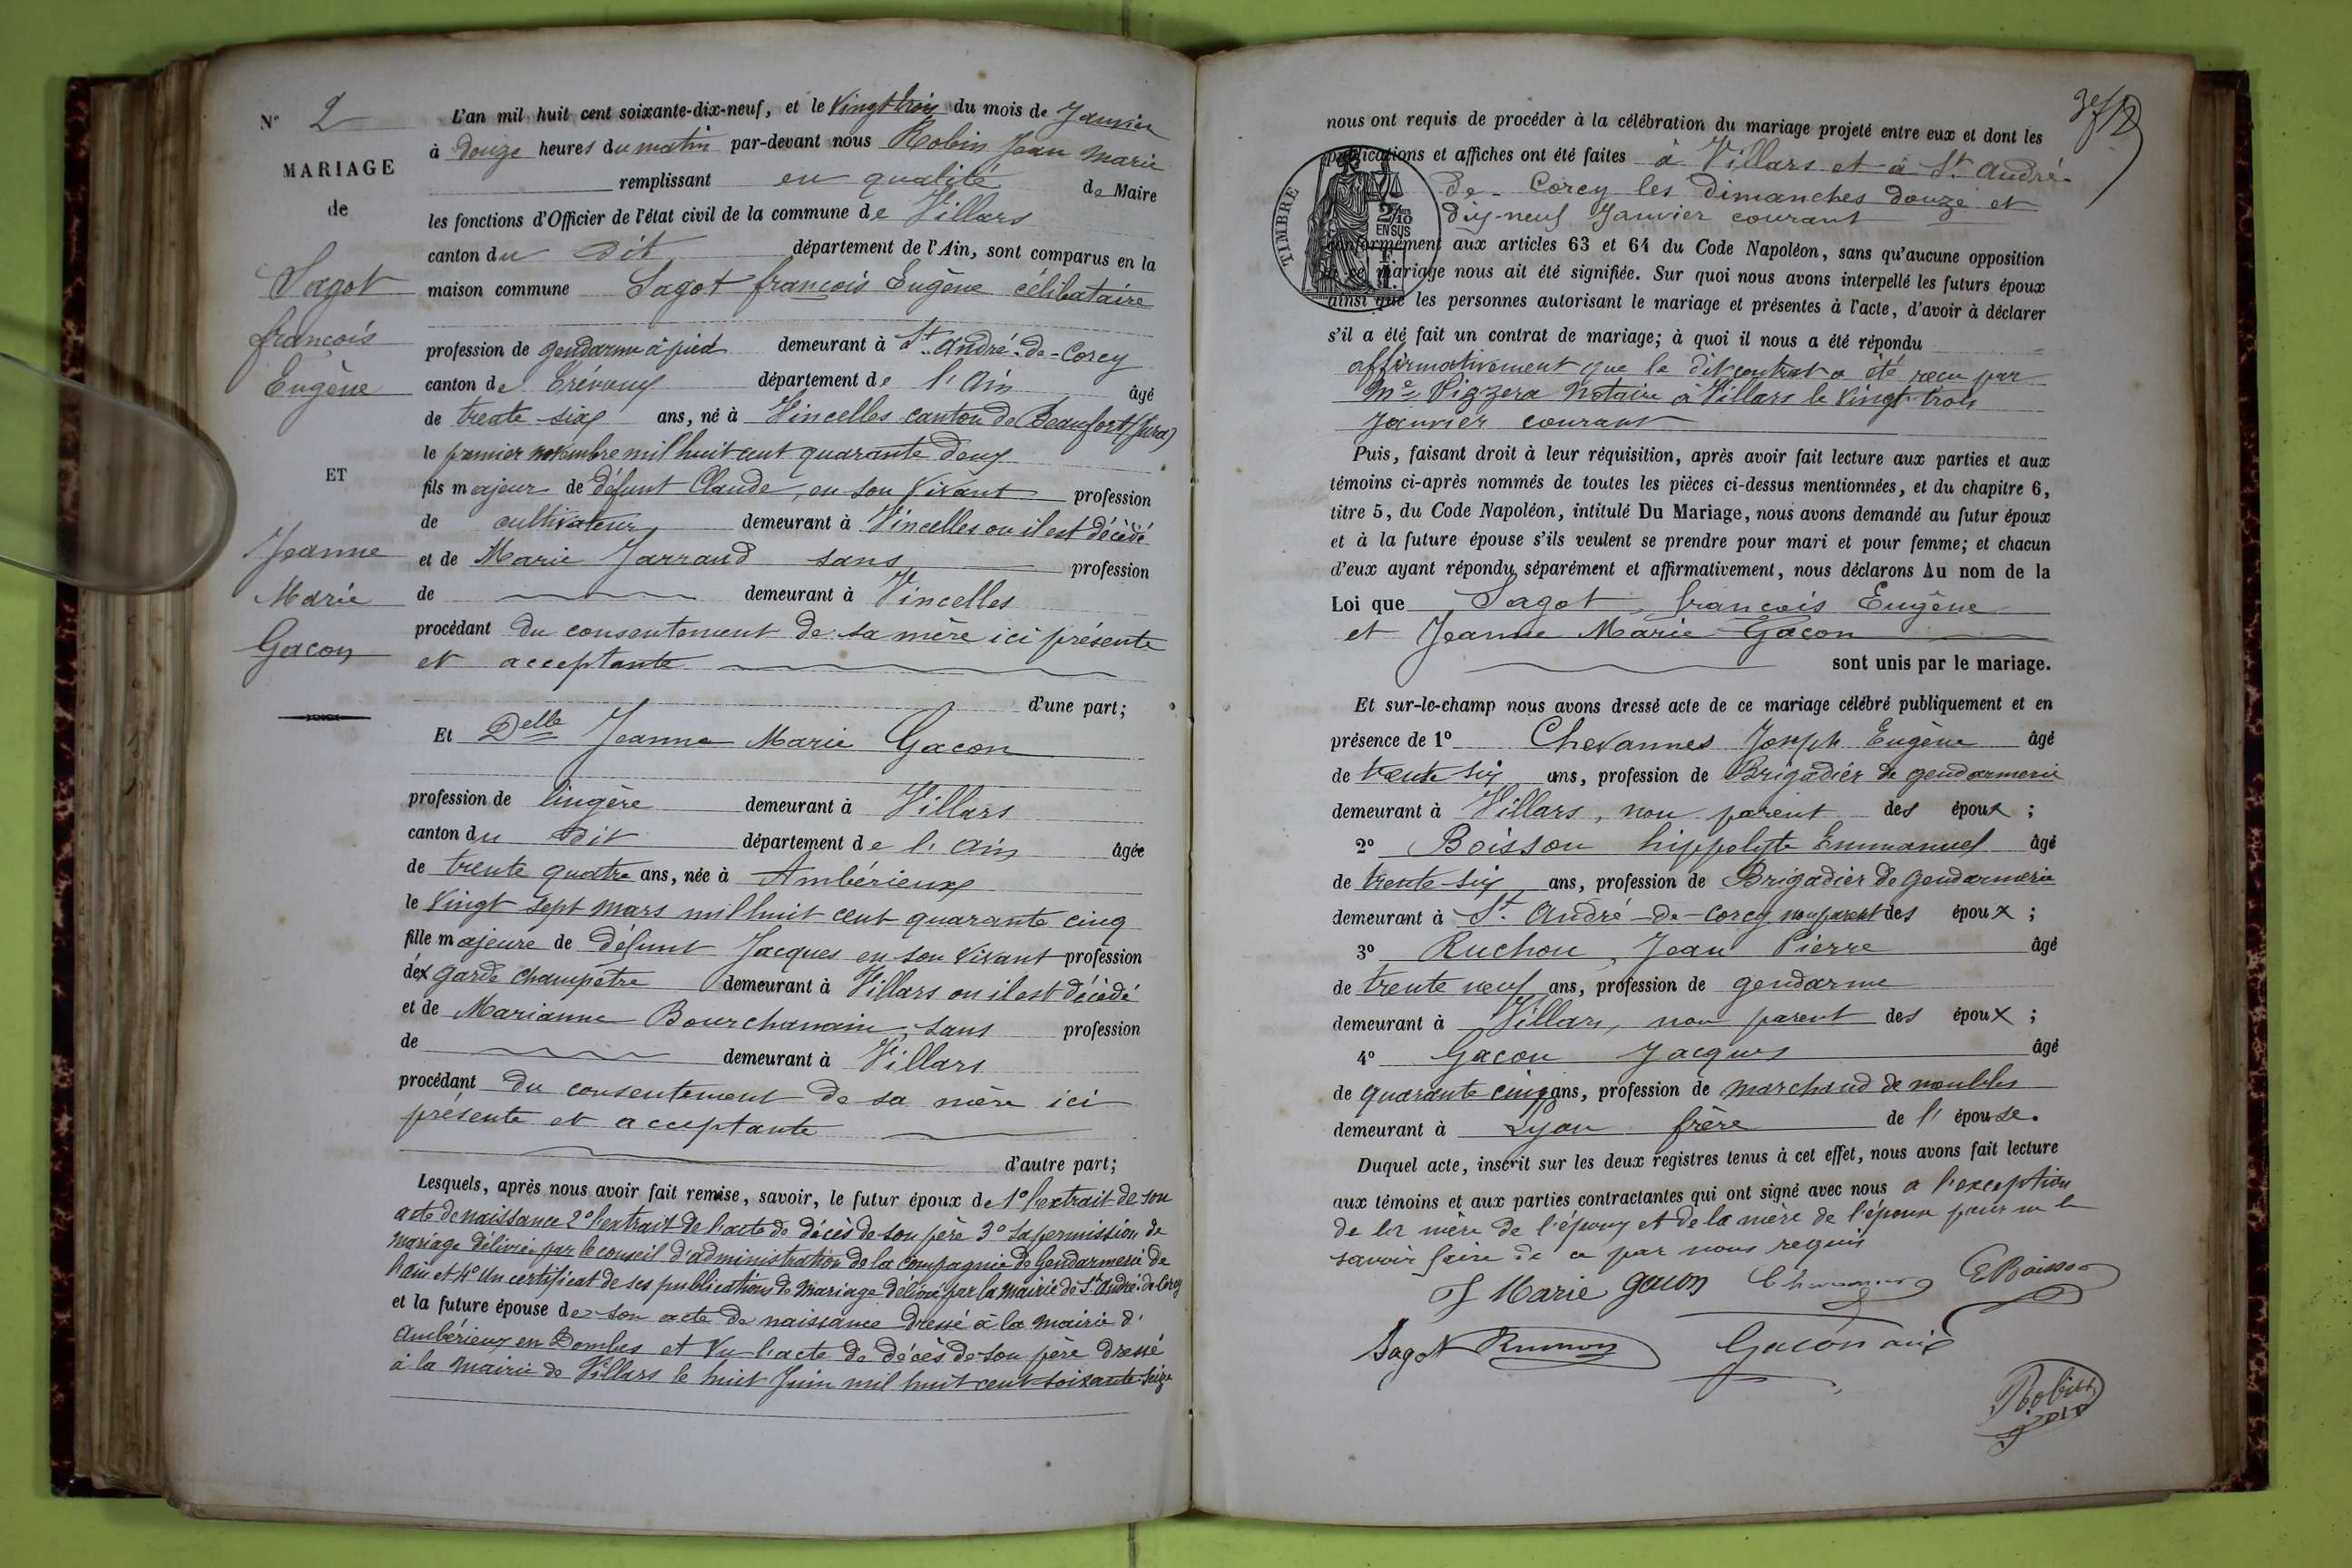 N° 2
MARIAGE
de
Sagot
françois
Eugène
ET
Jeanne
Marie
Gacon
L'an mil huit cent soixante-dix-neuf, et le vingt trois du mois de Janvier
à douze heures du matin par-devant nous Robin Jean Marie
remplissant en qualité de Maire
les fonctions d'Officier de l'état civil de la commune de Villars
canton du dit département de l'Ain, sont comparus en la
maison commune Sagot françois Eugène célibataire
profession de gendarme à pied demeurant à St. André-de-Corcy
canton de Trévoux département de l'Ain âgé
de trente six ans, né à Vincelles canton de Beaufort (Jura)
le premier novembre mil huit cent quarante deux
fils majeur de défunt Claude, en son vivant profession
de cultivateur demeurant à Vincelles ou il est décédé
et de Marie Jarraud sans profession
de demeurant à Vincelles
procédant du consentement de sa mère ici présente
et acceptante
d'une part;
Et Delle Jeanne Marie Gacon
profession de lingère demeurant à Villars
canton du dit département de l'Ain âgée
de trente quatre ans, née à Ambérieux
le vingt sept mars mil huit cent quarante cinq
fille majeure de défunt Jacques en son vivant profession
d'ex garde champêtre demeurant à Villars ou il est décédé
et de Marianne Bourchanain, sans profession
de demeurant à Villars
procédant du consentement de sa mère ici
présente et acceptante
d'autre part;
Lesquels, après nous avoir fait remise, savoir, le futur époux de 1° l'extrait de son
acte de naissance 2° l'extrait de l'acte de décès de son père 3° sa permission de
mariage délivrée par le conseil d'administration de la compagnie de Gendarmerie de
l'ain et 4° Un certificat de ses publications de mariage délivré par la mairie de St. André-de-Corcy
et la future épouse de son acte de naissance dressé à la mairie d'
Ambérieux en Dombes et Vu l'acte de décès de son père dressé
à la mairie de Villars le huit Juin mil huit cent soixante-seize
nous ont requis de procéder à la célébration du mariage projeté entre eux et dont les
publications et affiches ont été faites à Villars et à St. André-
de-Corcy les dimanches douze et
dix-neuf Janvier courant
TIMBRE
2/10
EN SUS
conformément aux articles 63 et 64 du Code Napoléon, sans qu'aucune opposition
à ce mariage nous ait été signifiée. Sur quoi nous avons interpellé les futurs époux
ainsi que les personnes autorisant le mariage et présentes à l'acte, d'avoir à déclarer
s'il a été fait un contrat de mariage; à quoi il nous a été répondu
affirmativement que le dit contrat a été reçu par
Me Vizzera Notaire à Villars le vingt-trois
Janvier courant
Puis, faisant droit à leur réquisition, après avoir fait lecture aux parties et aux
témoins ci-après nommés de toutes les pièces ci-dessus mentionnées, et du chapitre 6,
titre 5, du Code Napoléon, intitulé Du Mariage, nous avons demandé au futur époux
et à la future épouse s'ils veulent se prendre pour mari et pour femme; et chacun
d'eux ayant répondu séparément et affirmativement, nous déclarons Au nom de la
Loi que Sagot, françois Eugène
et Jeanne Marie Gacon
sont unis par le mariage.
Et sur-le-champ nous avons dressé acte de ce mariage célébré publiquement et en
présence de 1° Chevannes Joseph Eugène âgé
de trente six ans, profession de Brigadier de gendarmerie
demeurant à Villars, non parent des époux ;
2° Boisson hippolyte Emmanuel âgé
de trente-six ans, profession de Brigadier de Gendarmerie
demeurant à St. André-de-Corcy non parent des époux ;
3° Ruchon, Jean Pierre âgé
de trente neuf ans, profession de gendarme
demeurant à Villars, non parent des époux ;
4° Gacon Jacques âgé
de quarante cinq ans, profession de marchand de meubles
demeurant à Lyon frère de l'épouse.
Duquel acte, inscrit sur les deux registres tenus à cet effet, nous avons fait lecture
aux témoins et aux parties contractantes qui ont signé avec nous a l'exception
de la mère de l'époux et de la mère de l'épouse pour ne le
savoir faire de ce par nous requis
J Marie gacon EBoisson
Sagot Gacon ainé
Robin